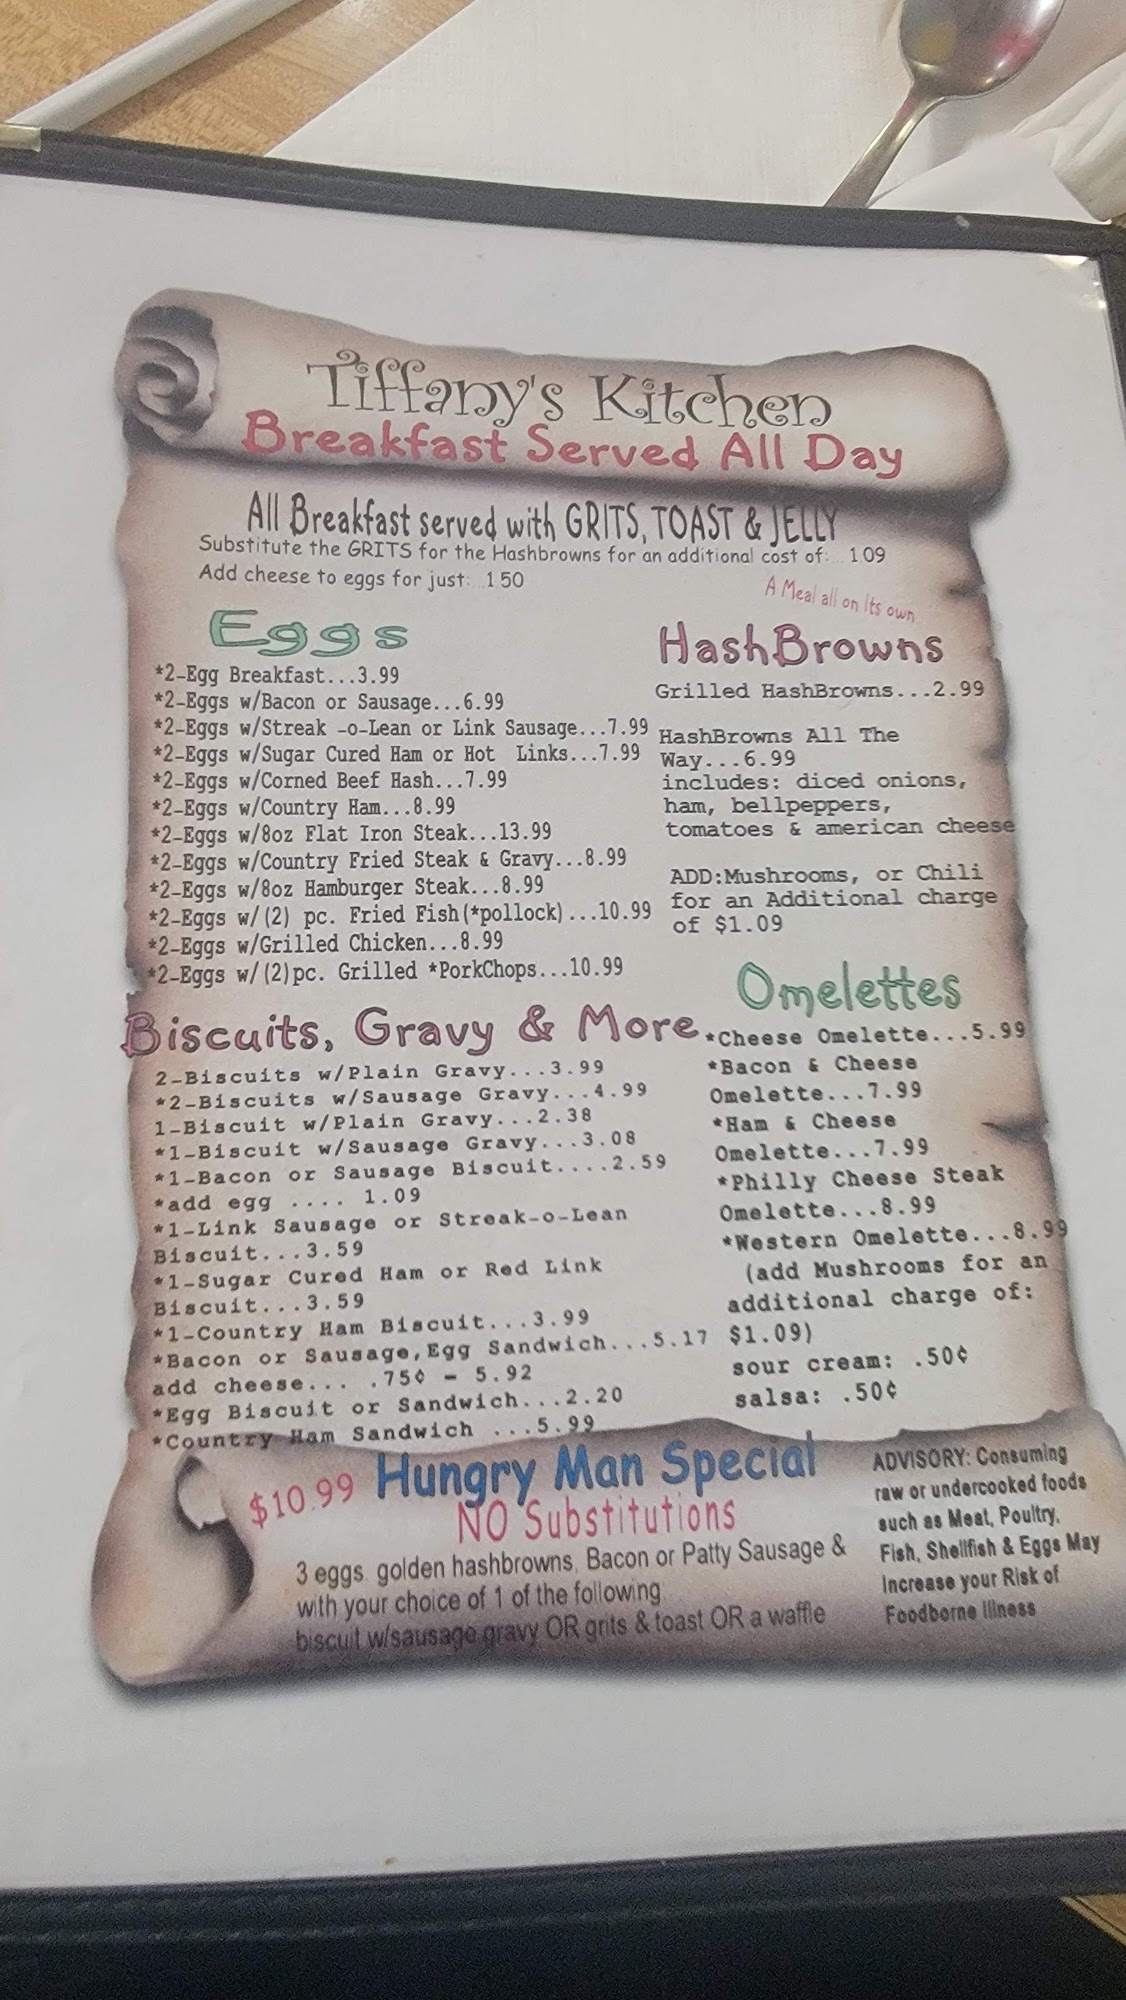 Tiffany's Kitchen
Breakfast Served All Day
All Breakfast served with GRITS, TOAST & JELLY
Substitute the GRITS for the Hashbrowns for an additional cost of:... 1.09
Add cheese to eggs for just:...1.50
Eggs
*2-Egg Breakfast...3.99
*2-Eggs w/Bacon or Sausage...6.99
*2-Eggs w/Streak -o-Lean or Link Sausage...7.99
*2-Eggs w/Sugar Cured Ham or Hot Links...7.99
*2-Eggs w/Corned Beef Hash...7.99
*2-Eggs w/Country Ham...8.99
*2-Eggs w/8oz Flat Iron Steak...13.99
*2-Eggs w/Country Fried Steak & Gravy...8.99
*2-Eggs w/8oz Hamburger Steak...8.99
*2-Eggs w/(2) pc. Fried Fish(*pollock)...10.99
*2-Eggs w/Grilled Chicken...8.99
*2-Eggs w/(2)pc. Grilled *PorkChops...10.99
A Meal all on Its own
HashBrowns
Grilled HashBrowns...2.99
HashBrowns All The
Way...6.99
includes: diced onions,
ham, bellpeppers,
tomatoes & american cheese
ADD:Mushrooms, or Chili
for an Additional charge
of $1.09
Biscuits, Gravy & More
2-Biscuits w/Plain Gravy...3.99
*2-Biscuits w/Sausage Gravy...4.99
1-Biscuit w/Plain Gravy...2.38
*1-Biscuit w/Sausage Gravy...3.08
*1-Bacon or Sausage Biscuit....2.59
*add egg .... 1.09
*1-Link Sausage or Streak-o-Lean
Biscuit...3.59
*1-Sugar Cured Ham or Red Link
Biscuit...3.59
*1-Country Ham Biscuit...3.99
*Bacon or Sausage,Egg Sandwich...5.17
add cheese... .75¢ - 5.92
*Egg Biscuit or Sandwich...2.20
*Country Ham Sandwich ...5.99
Omelettes
*Cheese Omelette...5.99
*Bacon & Cheese
Omelette...7.99
*Ham & Cheese
Omelette...7.99
*Philly Cheese Steak
Omelette...8.99
*Western Omelette...8.99
(add Mushrooms for an
additional charge of:
$1.09)
sour cream: .50¢
salsa: .50¢
$10.99 Hungry Man Special
NO Substitutions
3 eggs, golden hashbrowns, Bacon or Patty Sausage &
with your choice of 1 of the following
biscuit w/sausage gravy OR grits & toast OR a waffle
ADVISORY: Consuming
raw or undercooked foods
such as Meat, Poultry,
Fish, Shellfish & Eggs May
Increase your Risk of
Foodborne Illness